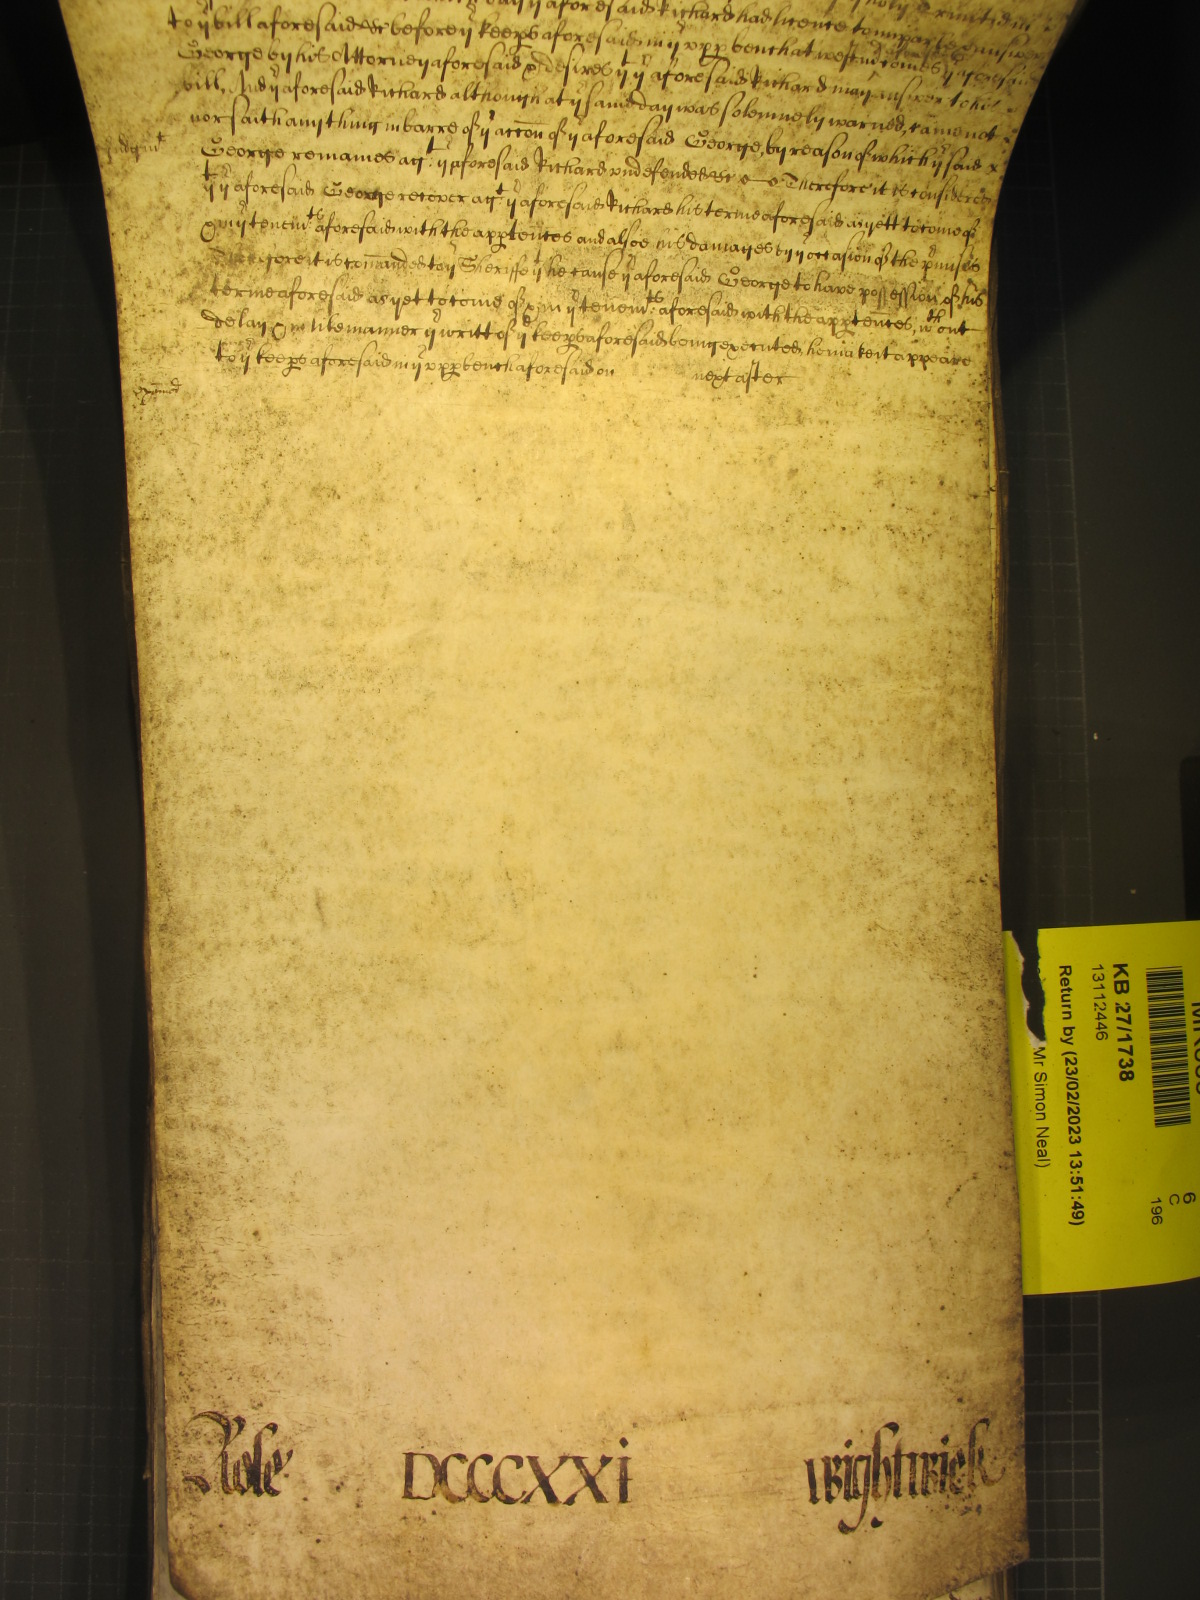 day yͤ aforesaid Richard had licence to imparle
to yͤ bill aforesaid &c before yͤ keeps aforesaid in yͤ upp bench at westm comes yͤ aforesaid
George by his Attorney aforesaid & desires yᵗ yͤ aforesaid Richard may answer to his
bill, And yͤ aforesaid Richard although at yͤ same day was solemnely warned, came not
nor saith any thing in barre of yͤ accōn of yͤ aforesaid George, by reason of which yͤ said
Judgmᵗ
George remaines agᵗ yͤ aforesaid Richard undefended &c Therefore it is considered
yᵗ yͤ aforesaid George recover agᵗ yͤ aforesaid Richard his terme aforesaid as yett to come of
& in yͤ tenemᵗˢ aforesaid with the apptences and alsoe his damages by yͤ occasion of the pmises
Therefore it is comanded to yͤ Sheriffe yᵗ he cause yͤ aforesaid George to have possession of his
terme aforesaid as yet to come of & in yͤ tenemᵗˢ aforesaid with the apptences, wᵗʰout
delay & in like manner yͤ writt of yͤ keeps aforesaid being executed, he make it appeare
to yͤ keeps aforesaid in yͤ upp bench aforesaid on next after
Role DCCCXXI Wightwick
KB 27/1738
13112446
Return by (23/02/2023 13:51:49)
Mr Simon Neal)
6
C
196